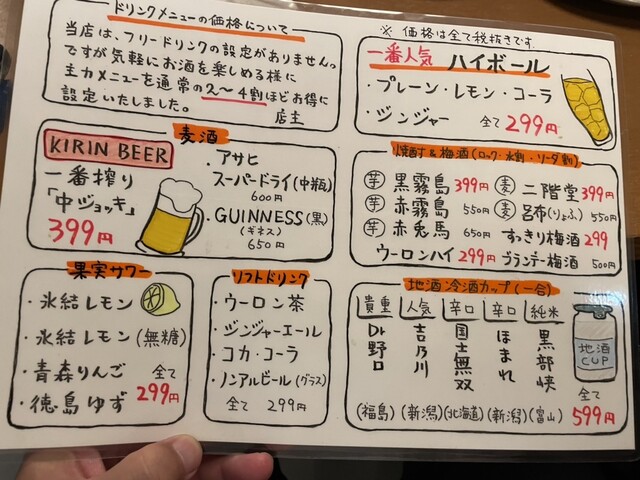 ドリンクメニューの価格について
当店は、フリードリンクの設定がありません。
ですが気軽にお酒を楽しめる様に
主力メニューを通常の2〜4割ほどお得に
設定いたしました。
店主
※ 価格は全て税抜きです。
一番人気 ハイボール
・プレーン・レモン・コーラ
・ジンジャー 全て 299円
麦酒
KIRIN BEER
一番搾り
「中ジョッキ」
399円
・アサヒ
スーパードライ(中瓶)
600円
・GUINNESS(黒)
(ギネス)
650円
焼酎&梅酒(ロック・水割・ソーダ割)
芋 黒霧島 399円
芋 赤霧島 550円
芋 赤兎馬 650円
ウーロンハイ 299円
麦 二階堂 399円
麦 呂布(りょふ) 550円
すっきり梅酒 299
ブランデー梅酒 500円
果実サワー
・氷結レモン
・氷結レモン(無糖)
・青森りんご
・徳島ゆず
全て
299円
ソフトドリンク
・ウーロン茶
・ジンジャーエール
・コカ・コーラ
・ノンアルビール(グラス)
全て 299円
地酒 冷酒カップ(一合)
貴重 Dr野口 (福島)
人気 吉乃川 (新潟)
辛口 国士無双 (北海道)
辛口 ほまれ (新潟)
純米 黒部峡 (富山)
地酒
CUP
全て
599円